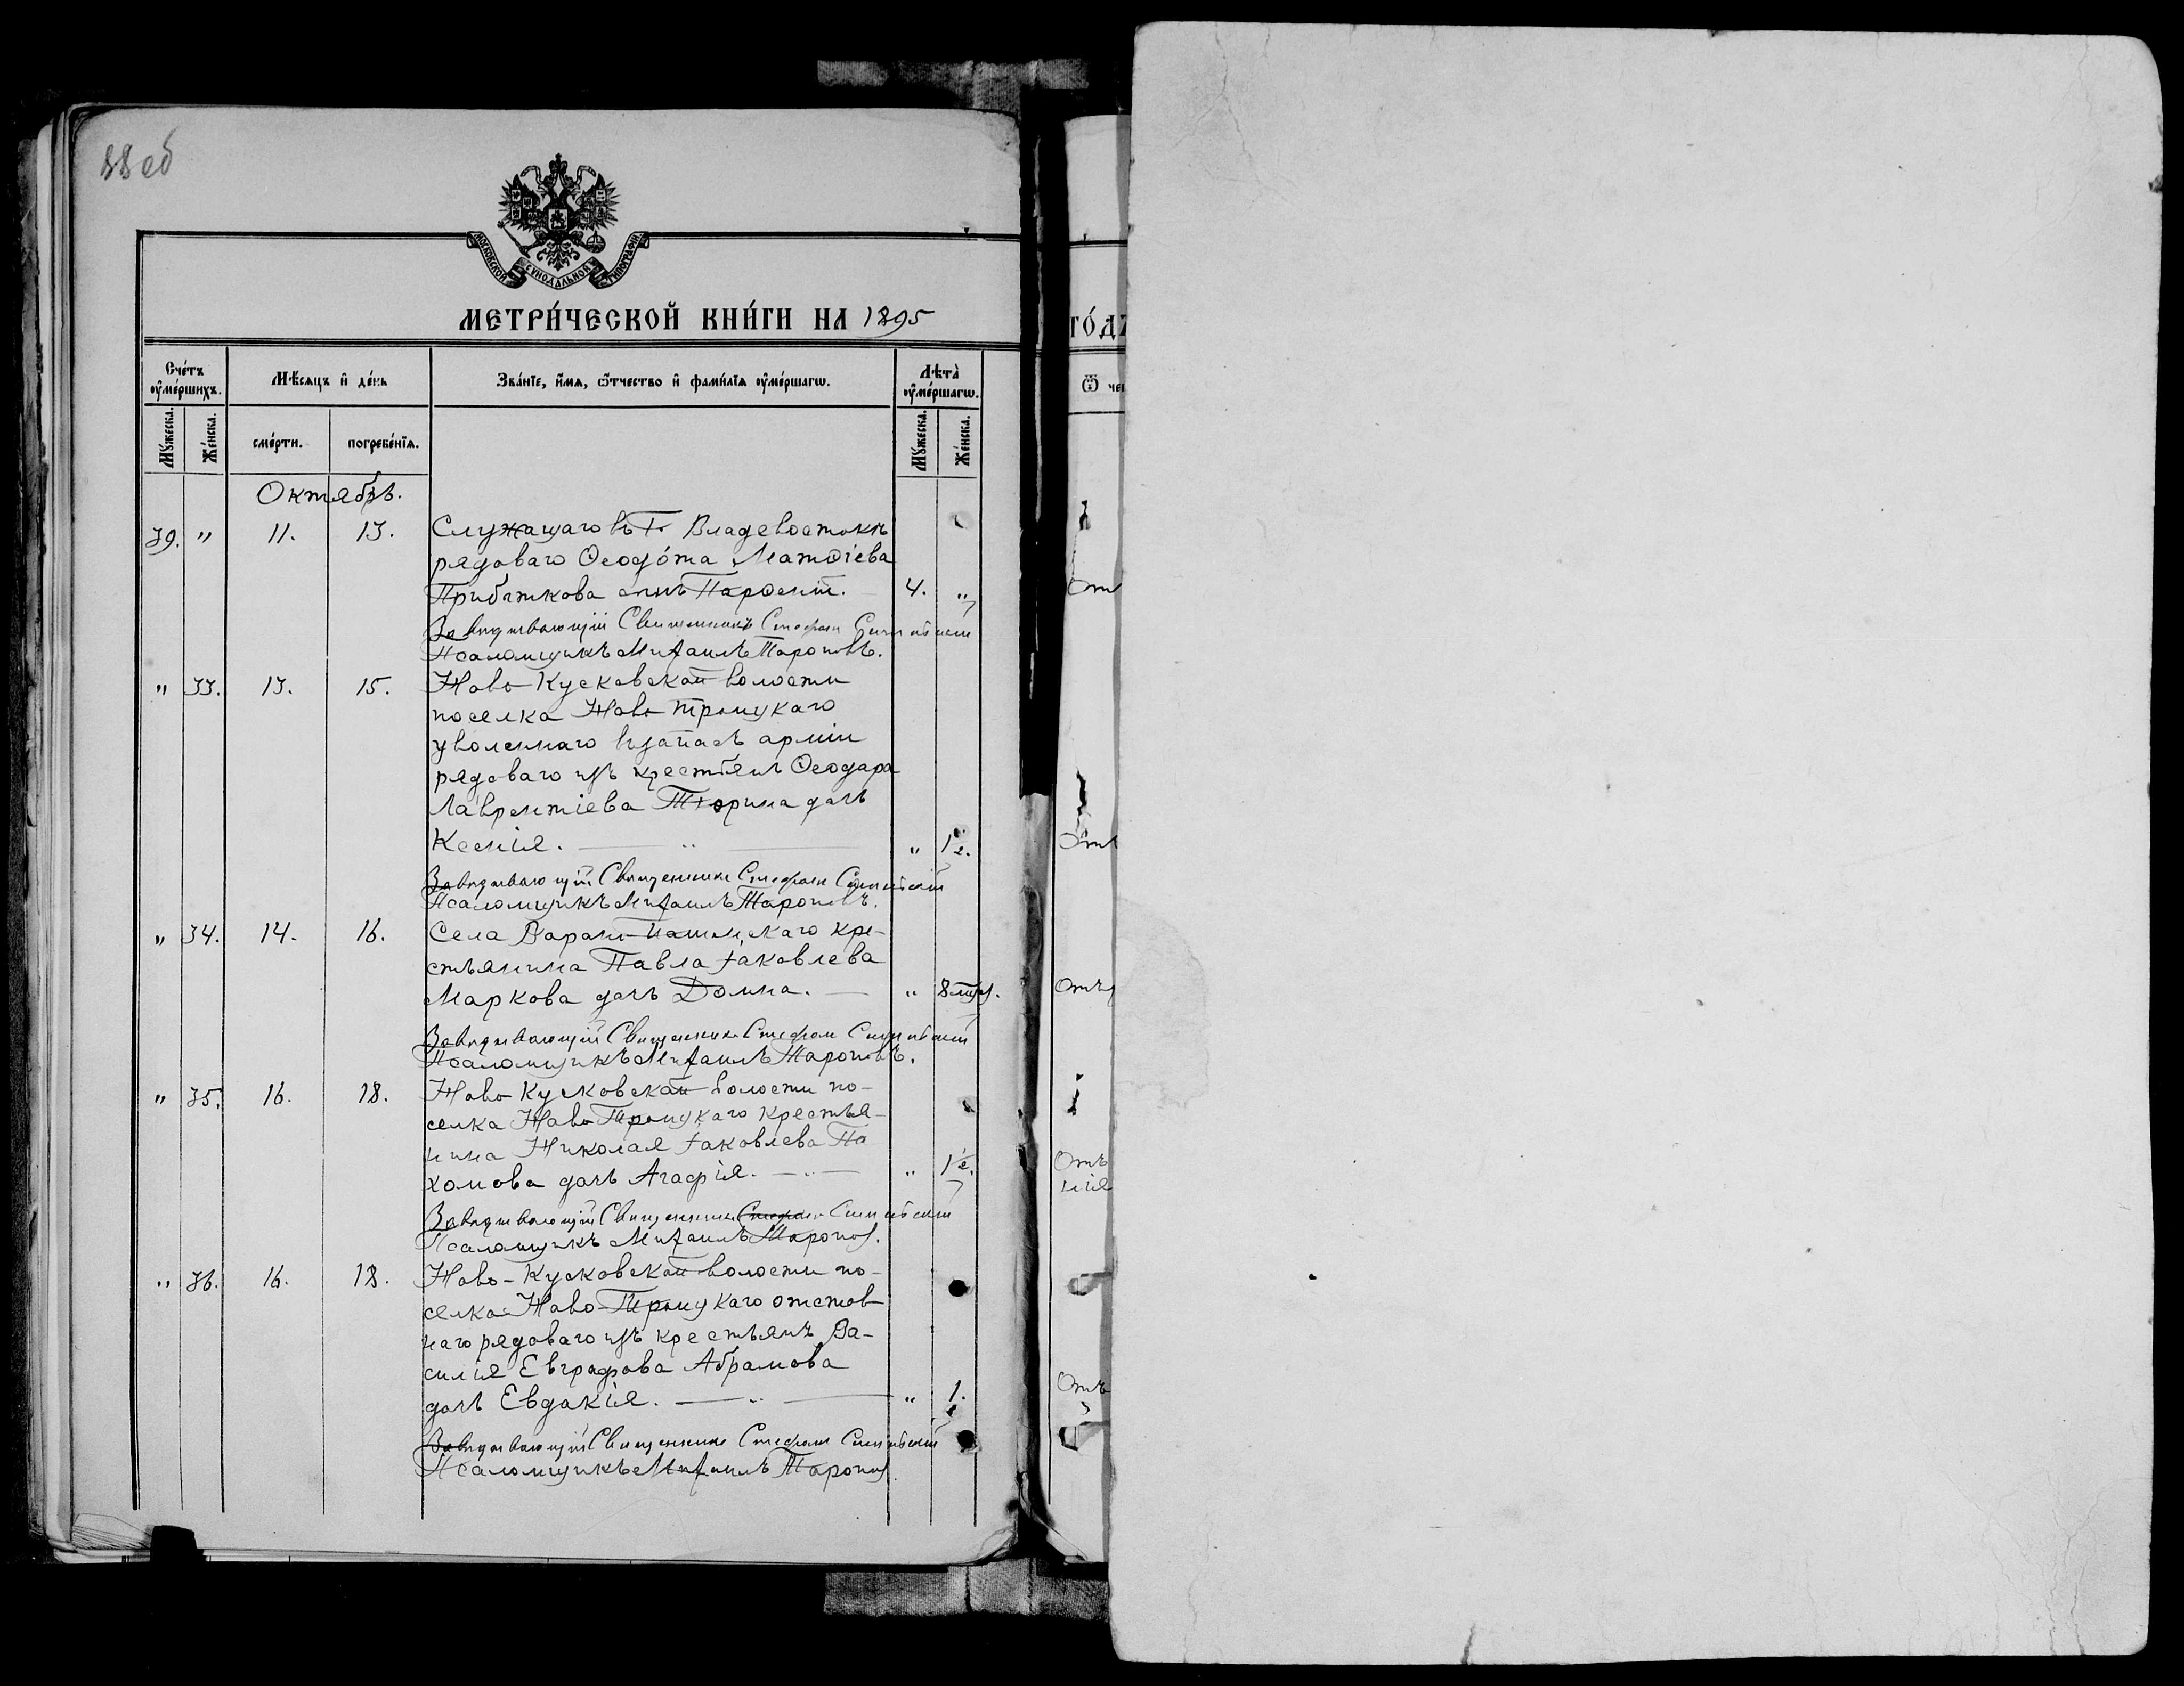 88 об
МОСКОВСКОЙ СѴНОДАЛЬНОЙ ТИПОГРАФІИ
МЕТРИ́ЧЕСКОЙ КНИ́ГИ НА 1895
Сче́тъ ᲂу҆ме́ршихъ.
Мѣ́сяцъ и҆ де́нь
Зва́нїе, и҆́мѧ, ѻ҆́тчество и҆ фами́лїѧ ᲂу҆ме́ршагѡ.
Лѣта̀ ᲂу҆ме́ршагѡ.
Мꙋ́жеска. Же́нска. сме́рти. погребе́нїѧ. Мꙋ́жеска. Же́нска.
Октябрь.
39. " 11. 13. Служащаго въ Г. Владевостокѣ
рядоваго Ѳеодо́та Матѳіева
Прибыткова сынъ Парѳеній. 4. "
Завѣдывающій Священникъ Стефанъ
Псаломщикъ Михаилъ Тороповъ.
" 33. 13. 15. Ново-Кусковской волости
поселка Ново Троицкаго
уволеннаго въ запасъ арміи
рядоваго изъ крестьянъ Ѳеодора
Лаврентіева Тюрина дочь
Ксенія. " 1 1/2.
Завѣдывающій Священникъ Стефанъ
Псаломщикъ Михаилъ Тороповъ.
" 34. 14. 16. Села Вороно-Пашенскаго кре-
стьянина Павла Іаковлева
Маркова дочь Домна. " 8 мѣс.
Завѣдывающій Священникъ Стефанъ
Псаломщикъ Михаилъ Тороповъ.
" 35. 16. 18. Ново-Кусковской волости по-
селка Ново-Троицкаго крестья-
нина Николая Іаковлева Па
хомова дочь Агафія. " 1 1/2.
Завѣдывающій Священникъ Стефанъ
Псаломщикъ Михаилъ Торопов.
" 36. 16. 18. Ново-Кусковской волости по-
селка Ново-Троицкаго отстав
наго рядоваго изъ крестьянъ Ва-
силія Евграфова Абрамова
дочь Евдокія. " 1.
Завѣдывающій Священникъ Стефанъ
Псаломщикъ Михаилъ Торопов